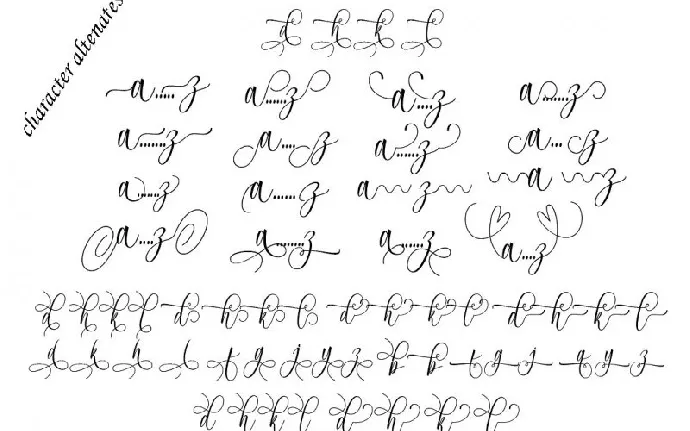 character altenates
d h k l
a......z a......z a.....z a.......z
a.......z a....z a......z a... z
a......z a......z a z a z
a....z a.......z a......z a....z
d h k l d h k l d h k l d h k l
d k h l t g j y z b b t g j q y z
d h k l d h k l